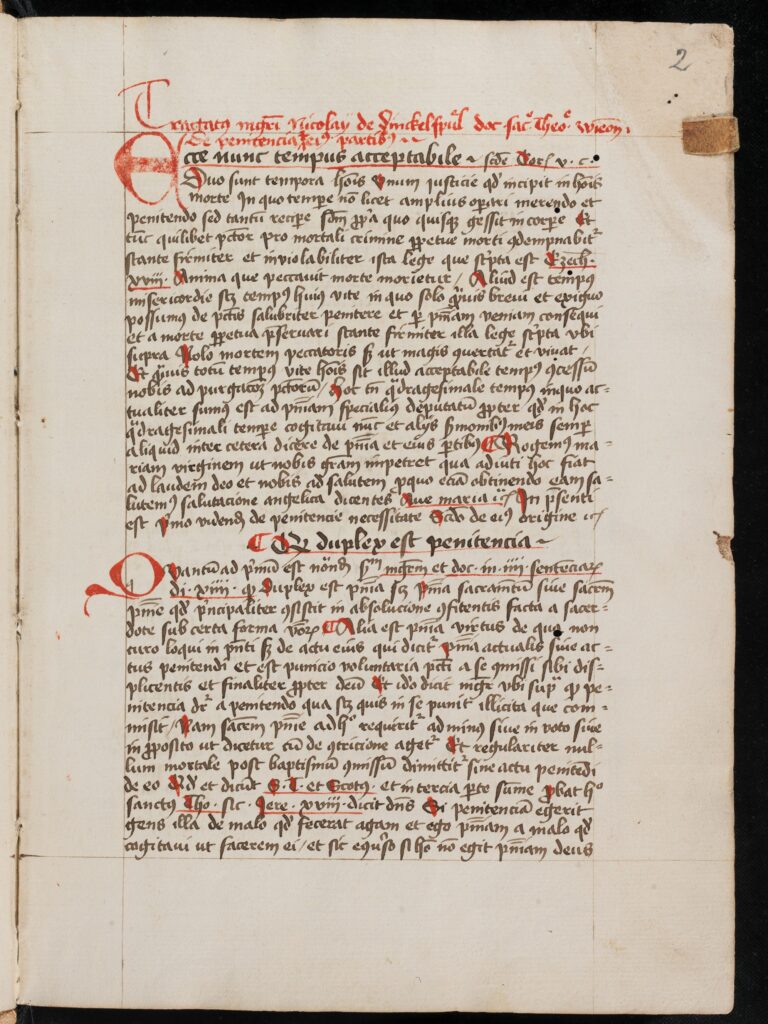 2
Tractatus mgri Nicolay de Dinckelspul doc sac Theo wienn
De penitencia et eius partibus
Ecce nunc tempus acceptabile scde Cor v. c.
Duo sunt tempora hois Vnum justicie qd incipit in hois
morte In quo tempe non licet amplius opari merendo et
penitendo sed tantu recipe sdm ppa quo quisqz gessit in corpe Et
tuc quilibet pctor pro mortali crimine perpetue morti 9dempnabitr
stante firmiter et inviolabiliter ista lege que scpta est Ezech.
xviii. Anima que peccauit morte morietur / Aliud est tempus
misericordie scz tempus huius vite in quo solo quis breui et exiguo
possumus de pctis salubriter penitere et p pniam veniam consequi
et a morte perpetua pseruari stante firmiter illa lege scpta vbi
supra Nolo mortem peccatoris sz ut magis 9uertatr et viuat /
Et quis totu tempus vite hois sit illud acceptabile tempus 9cessum
nobis ad purgacoz pctorum / Hoc tn qdragesimale tempus in quo ac=
tualiter sumus est ad pniam specialius deputatu propter qd in hoc
qdragesimali tempe cogitaui nuc et alijs smonibus meis semper
aliquid inter cetera dicere de pnia et eius ptibus Rogemus ma=
riam virginem ut nobis gram impetret qua adiuti hoc fiat
ad laudem deo et nobis ad salutem p quo ecia obtinendo eam sa=
lutemus salutacione angelica dicentes Aue maria ic In psenti
est pmo videnduz de penitencie necessitate Scdo de eius origine ic
Qz duplex est penitencia
Quantu ad pmu est notandu sm mgrm et doc. in. iiii. sentenciarz
di. xiiii. qz Duplex est pnia scz pnia sacramtum siue sacrm
pnie qd pncipaliter 9sistit in absolucione 9fitentis facta a sacer=
dote sub certa forma vborz Alia est pnia virtus de qua non
curo loqui in pnti sz de actu eius qui dicitr pnia actualis siue ac=
tus penitendi et est punicio voluntaria pcti a se 9missi sibi dis=
plicentis et finaliter ppter deu Et ideo dicit mgr vbi sup qz pe=
nitencia dr a penitendo qua scz quis in se punit illicita que com=
misit / Nam sacrm pnie ad hoc requiritr ad minus siue in voto siue
in pposito ut dicetur cu de 9tricione agetr Et regulariter nul=
lum mortale post baptismu 9missum dimittitr sine actu penitedi
de eo Qd et dicut S. T. et Scotus. et in tercia pte sume pbat hoc
sanctus Tho. sic. Jere. xviii. dicit dns Si penitenciam egerit
gens illa de malo qd fecerat agam et ego pniam a malo qd
cogitaui ut facerem ei / et sic e9uerso si ho no egit pniam deus